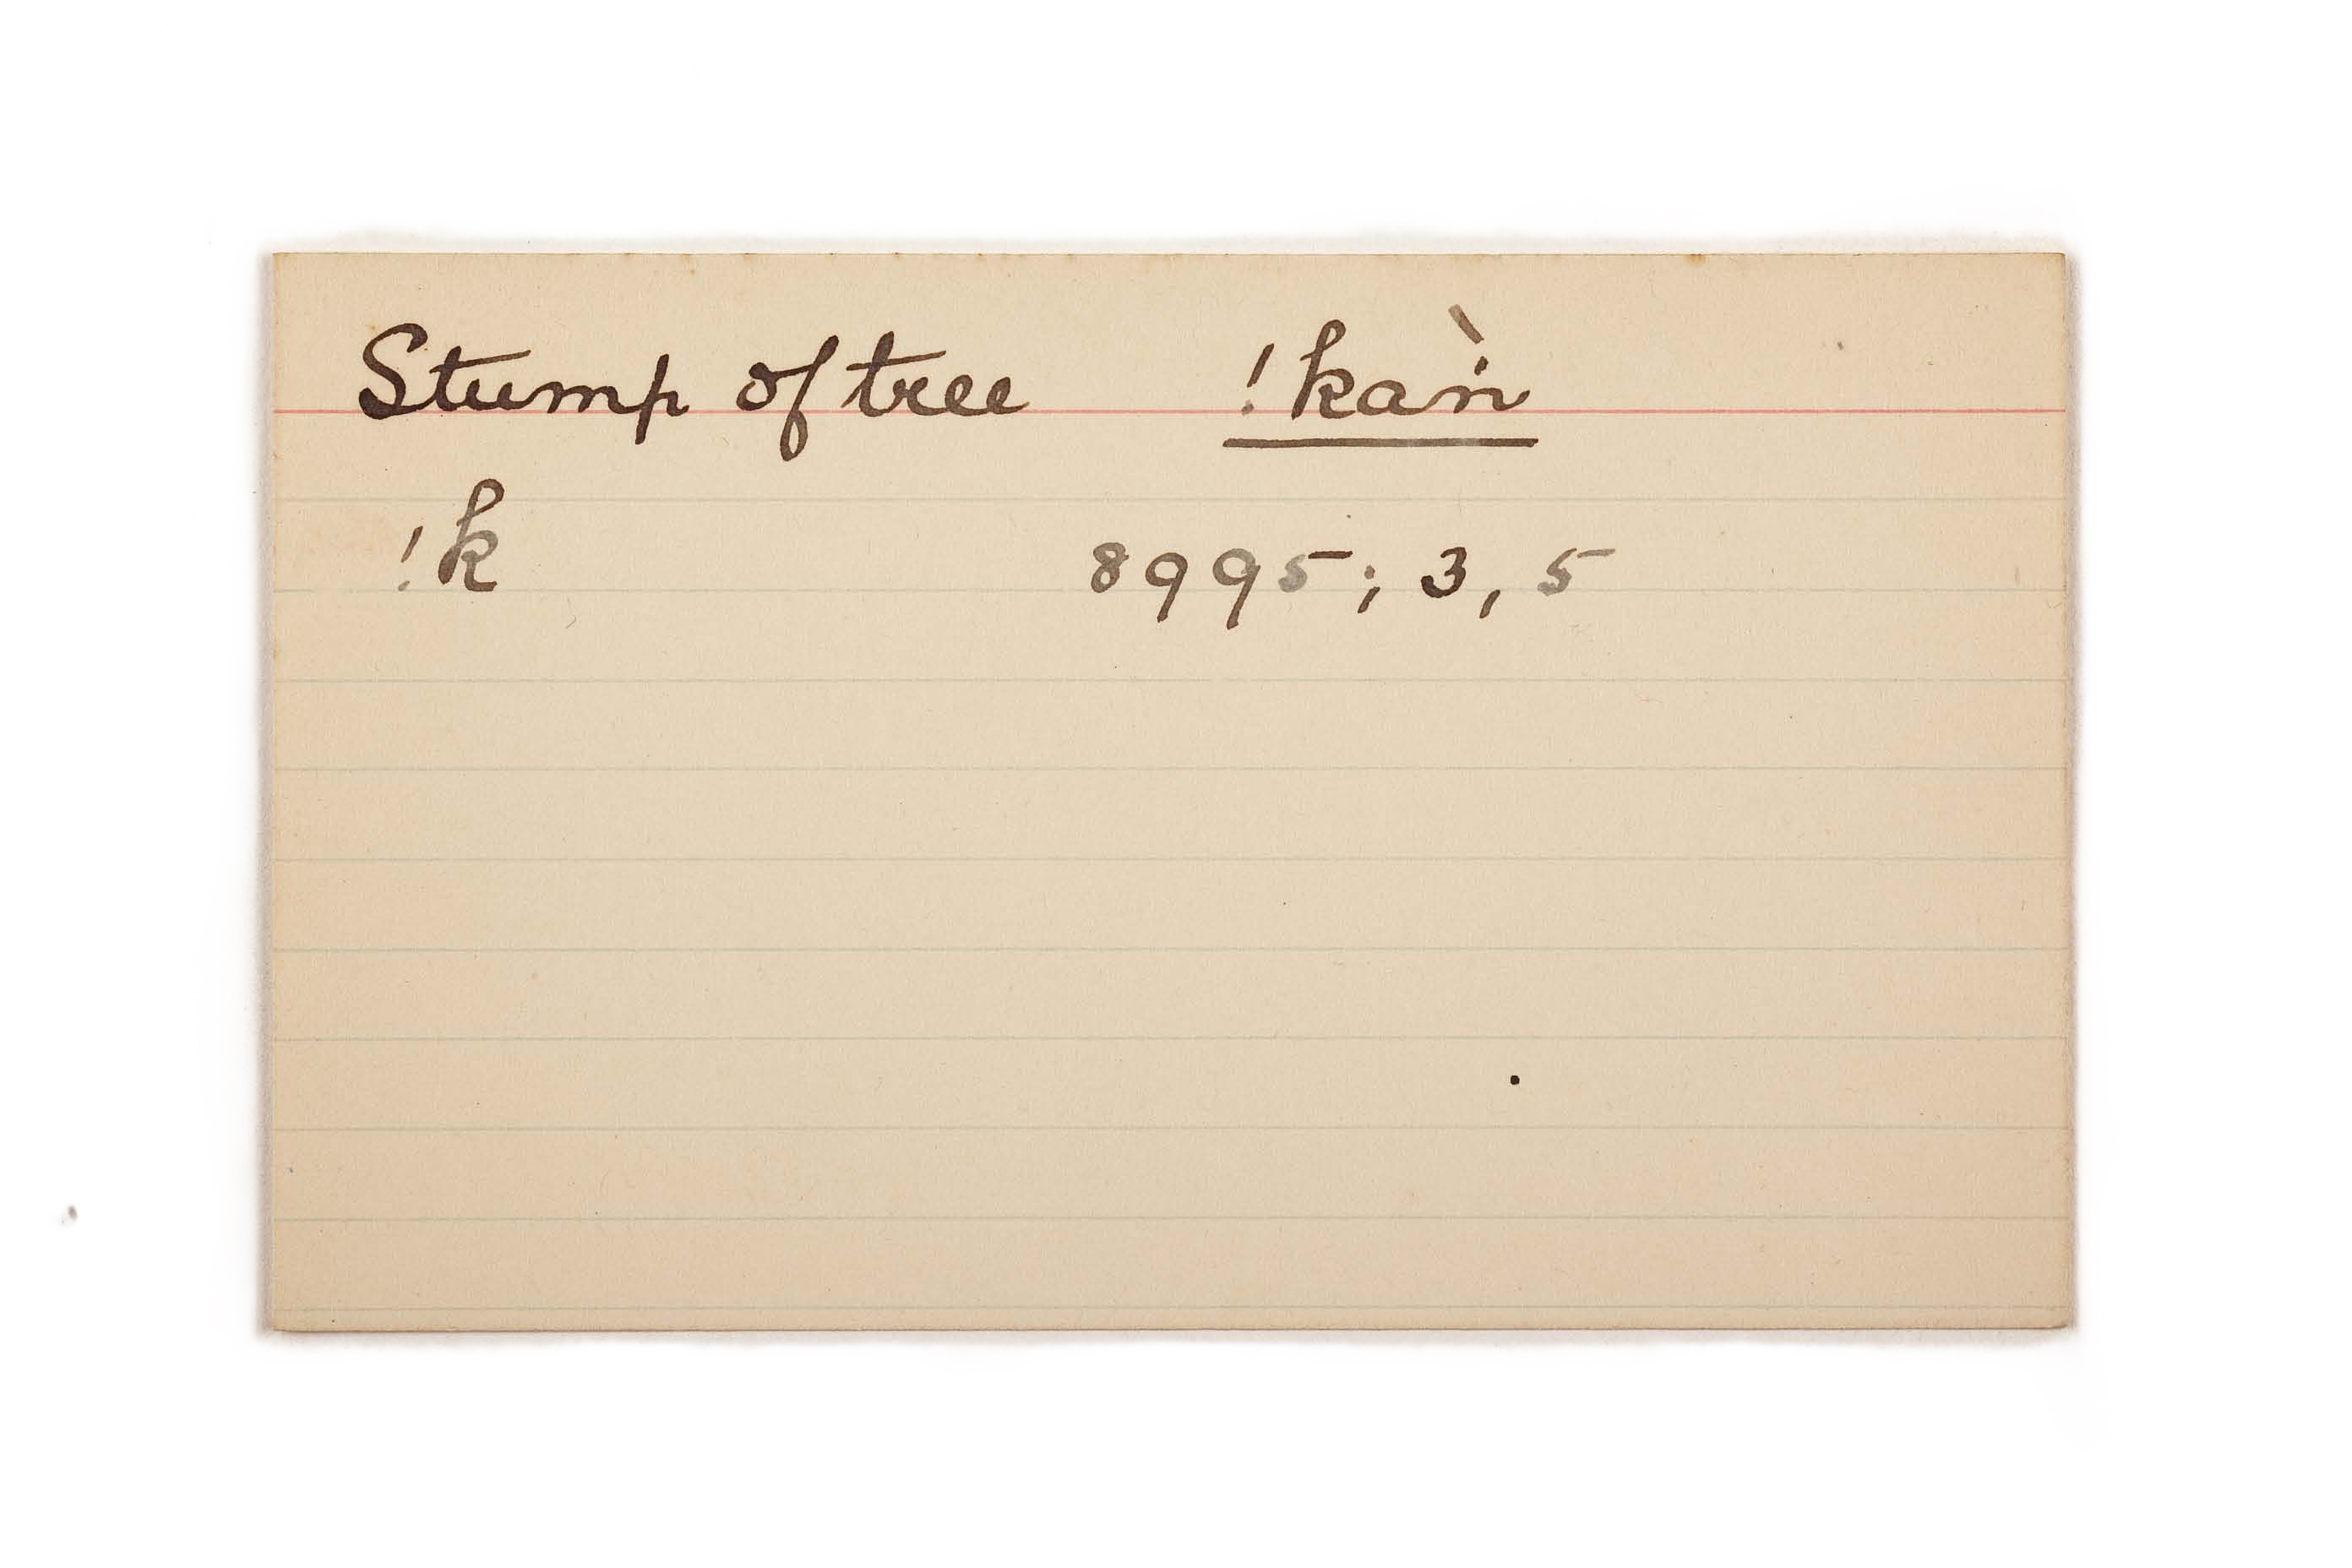 Stump of tree !kaǹ
!k 8995; 3, 5